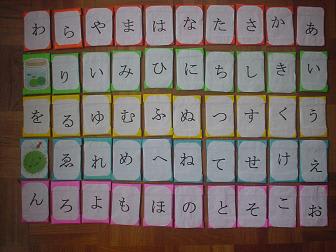 あいうえお
かきくけこ
さしすせそ
たちつてと
なにぬねの
はひふへほ
まみむめも
やいゆれよ
らりるゑろ
わをん